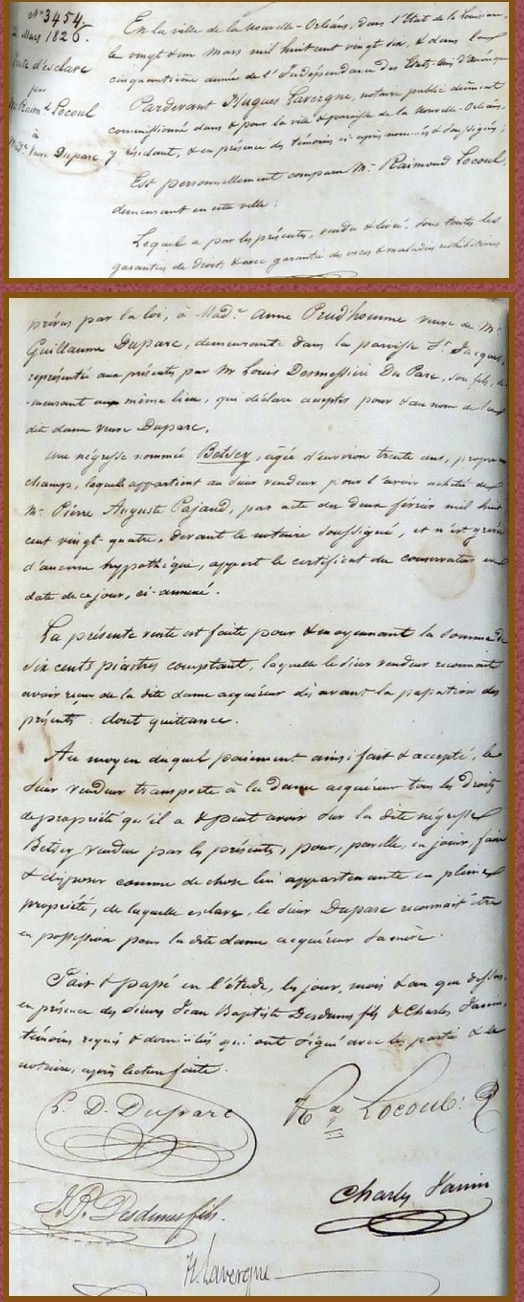 N° 3454.
Mars 1826.
Vente d'esclave
par
Raimd Locoul
à
Made Veuve Duparc
En la ville de la Nouvelle-Orléans, dans l'Etat de la Louisiane,
le vingt & un Mars mil huit cent vingt six, & dans la
cinquantième année de l'Indépendance des Etats-Unis d'Amérique
Pardevant Hugues Lavergne, notaire public dûment
commissionné dans & pour la ville & paroisse de la Nouvelle-Orléans,
y résidant, & en présence des témoins ci-après nommés & soussignés;
Est personnellement comparu Mr Raimond Locoul,
demeurant en cette ville:
Lequel a par les présentes, vendu & livré, sous toutes les
garanties de droit, & avec garantie des vices & maladies redhibitoires
prévus par la loi, à Made Anne Prud'homme veuve de Mr
Guillaume Duparc, demeurante dans la paroisse St Jacques,
représentée aux présentes par Mr Louis Desmessière Du Parc, son fils, de-
-meurant au même lieu, qui déclare accepter pour & au nom de la
dite dame veuve Duparc,
Une négresse nommée Betsey, agée d'environ trente ans, propre
champ, laquelle appartient au sieur vendeur pour l'avoir achetée de
Mr Pierre Auguste Pajaud, par acte du deux février mil huit
cent vingt-quatre, devant le notaire soussigné, et n'est grevée
d'aucune hypothèque, appert le certificat du conservateur en
date de ce jour, ci-annexé.
La présente vente est faite pour & moyennant la somme de
six cents piastres comptant, laquelle le sieur vendeur reconnait
avoir reçue de la dite dame acquéreur dès avant la passation des
présentes: dont quittance.
Au moyen duquel paiement ainsi fait & accepté, le
sieur vendeur transporte à la dame acquéreur tous les droits
de propriété qu'il a & peut avoir sur la dite négresse
Betsey vendue par les présentes, pour, par elle, en jouir, faire
& disposer comme de chose lui appartenante en pleine
propriété, de laquelle esclave, le sieur Duparc reconnait être
en possession pour la dite dame acquéreur sa mère.
Fait & passé en l'étude, les jour, mois & an que dessus,
en présence des sieurs Jean Baptiste Desdunes fils & Charles Janin,
témoins requis & domiciliés qui ont signé avec les parties & le
notaire, après lecture faite.
L. D. Duparc
Rd Locoul
J. B. Desdunes fils.
Charles Janin
H. Lavergne